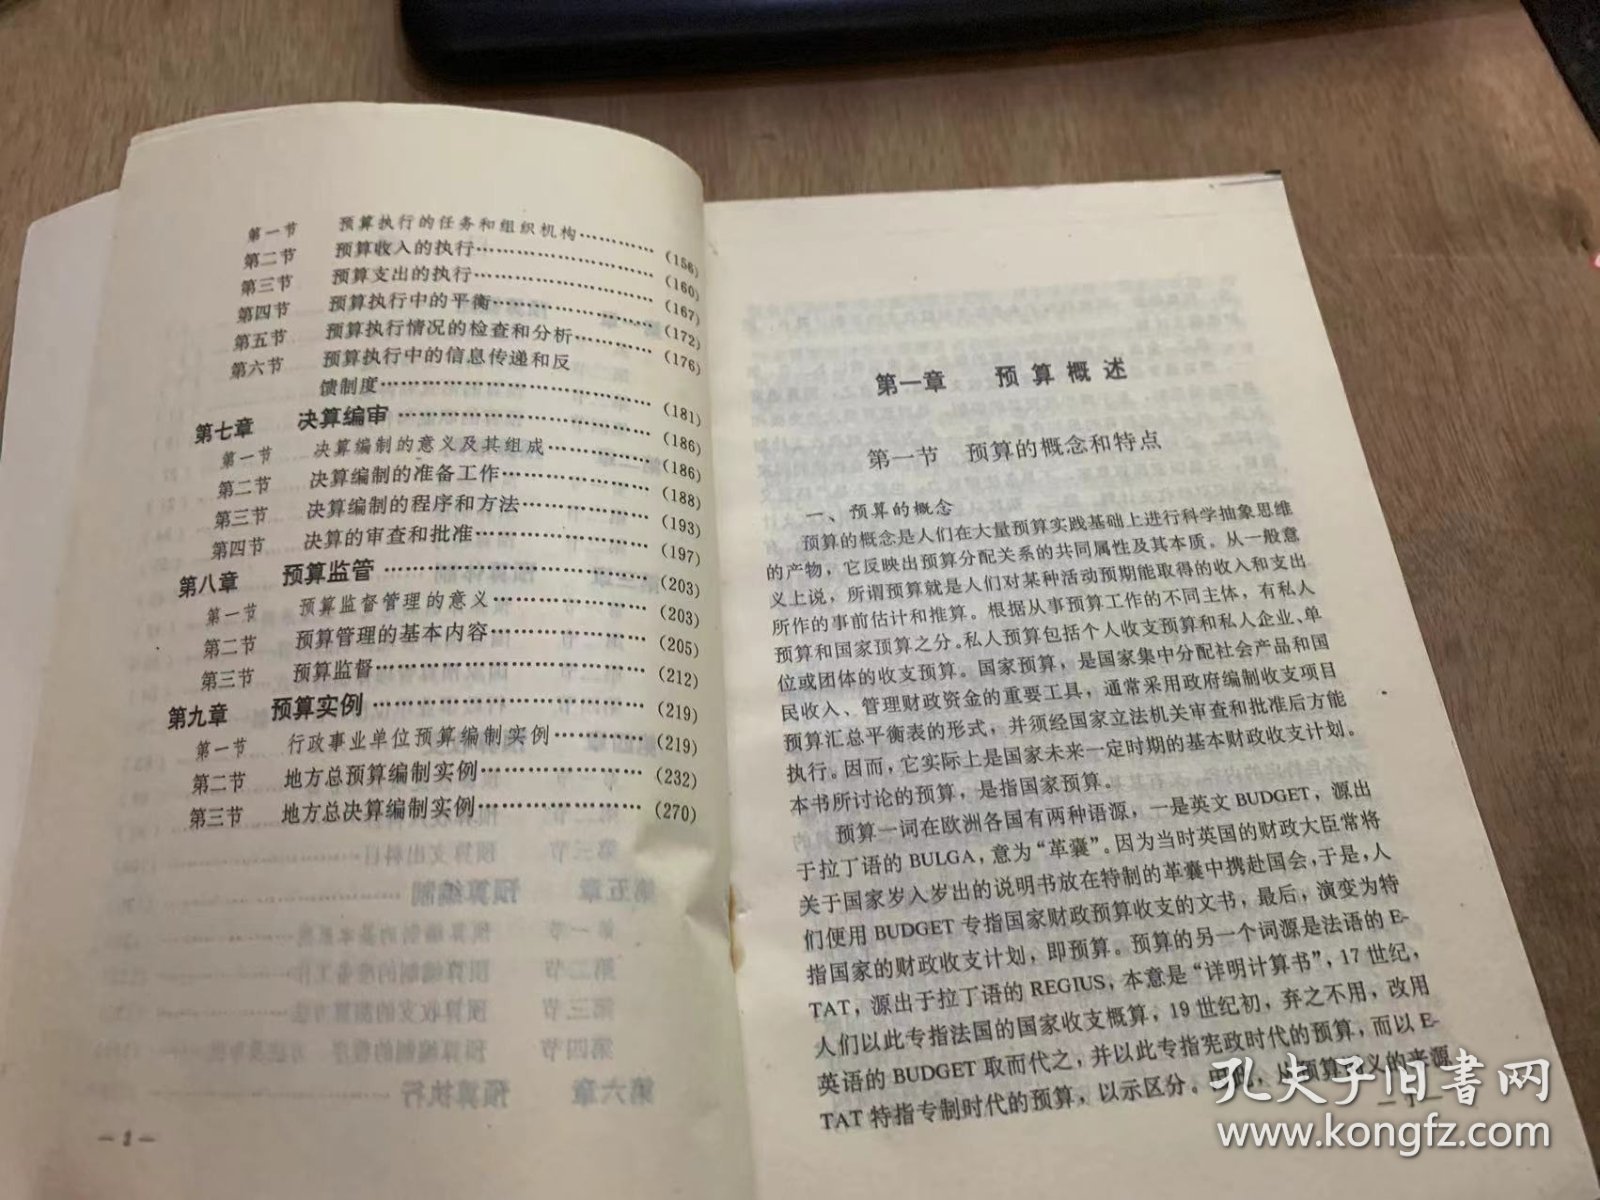 第一节 预算执行的任务和组织机构…………(156)
第二节 预算收入的执行……………………(160)
第三节 预算支出的执行……………………(167)
第四节 预算执行中的平衡…………………(172)
第五节 预算执行情况的检查和分析………(176)
第六节 预算执行中的信息传递和反
馈制度………………………………(181)
第七章 决算编审……………………………(186)
第一节 决算编制的意义及其组成…………(186)
第二节 决算编制的准备工作………………(188)
第三节 决算编制的程序和方法……………(193)
第四节 决算的审查和批准…………………(197)
第八章 预算监管……………………………(203)
第一节 预算监督管理的意义………………(203)
第二节 预算管理的基本内容………………(205)
第三节 预算监督……………………………(212)
第九章 预算实例……………………………(219)
第一节 行政事业单位预算编制实例………(219)
第二节 地方总预算编制实例………………(232)
第三节 地方总决算编制实例………………(270)
第一章 预算概述
第一节 预算的概念和特点
一、预算的概念
预算的概念是人们在大量预算实践基础上进行科学抽象思维
的产物，它反映出预算分配关系的共同属性及其本质。从一般意
义上说，所谓预算就是人们对某种活动预期能取得的收入和支出
所作的事前估计和推算。根据从事预算工作的不同主体，有私人
预算和国家预算之分。私人预算包括个人收支预算和私人企业、单
位或团体的收支预算。国家预算，是国家集中分配社会产品和国
民收入、管理财政资金的重要工具，通常采用政府编制收支项目
预算汇总平衡表的形式，并须经国家立法机关审查和批准后方能
执行。因而，它实际上是国家未来一定时期的基本财政收支计划。
本书所讨论的预算，是指国家预算。
预算一词在欧洲各国有两种语源，一是英文 BUDGET，源出
于拉丁语的 BULGA，意为“革囊”。因为当时英国的财政大臣常将
关于国家岁入岁出的说明书放在特制的革囊中携赴国会，于是，人
们便用 BUDGET 专指国家财政预算收支的文书，最后，演变为特
指国家的财政收支计划，即预算。预算的另一个词源是法语的 E-
TAT，源出于拉丁语的 REGIUS，本意是“详明计算书”，17 世纪，
人们以此专指法国的国家收支概算，19 世纪初，弃之不用，改用
英语的 BUDGET 取而代之，并以此专指宪政时代的预算，而以 E-
TAT 特指专制时代的预算，以示区分。
预算
的来源
— 1 —
孔夫子旧书网
www.kongfz.com